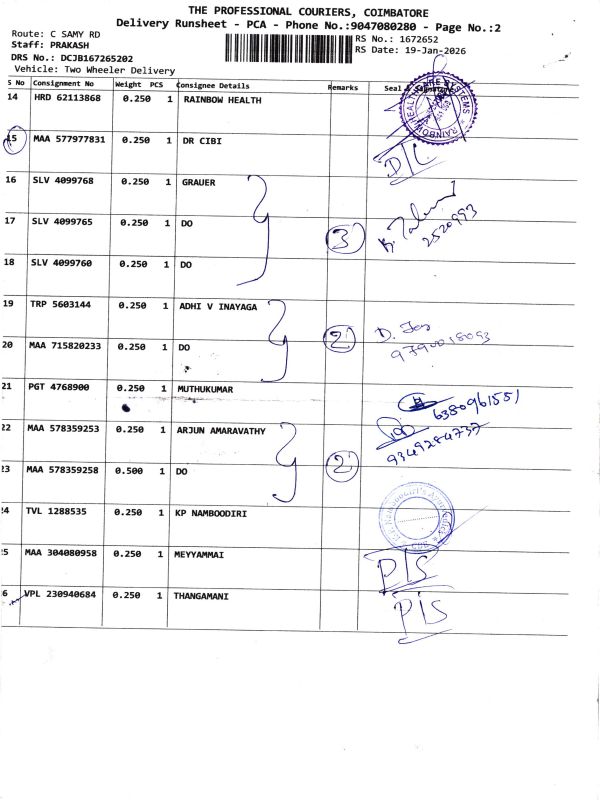 THE PROFESSIONAL COURIERS, COIMBATORE
Delivery Runsheet - PCA - Phone No.:9047080280 - Page No.:2
Route: C SAMY RD
RS No.: 1672652
Staff: PRAKASH
RS Date: 19-Jan-2026
DRS No.: DCJB167265202
Vehicle: Two Wheeler Delivery
S No Consignment No Weight PCS Consignee Details Remarks Seal & Signature
14 HRD 62113868 0.250 1 RAINBOW HEALTH
15 MAA 577977831 0.250 1 DR CIBI D/L
16 SLV 4099768 0.250 1 GRAUER
17 SLV 4099765 0.250 1 DO 3
2520993
18 SLV 4099760 0.250 1 DO
19 TRP 5603144 0.250 1 ADHI V INAYAGA
20 MAA 715820233 0.250 1 DO 2
21 PGT 4768900 0.250 1 MUTHUKUMAR 6380961551
22 MAA 578359253 0.250 1 ARJUN AMARAVATHY 9349284737
23 MAA 578359258 0.500 1 DO 2
24 TVL 1288535 0.250 1 KP NAMBOODIRI
25 MAA 304080958 0.250 1 MEYYAMMAI P/S
26 VPL 230940684 0.250 1 THANGAMANI P/S